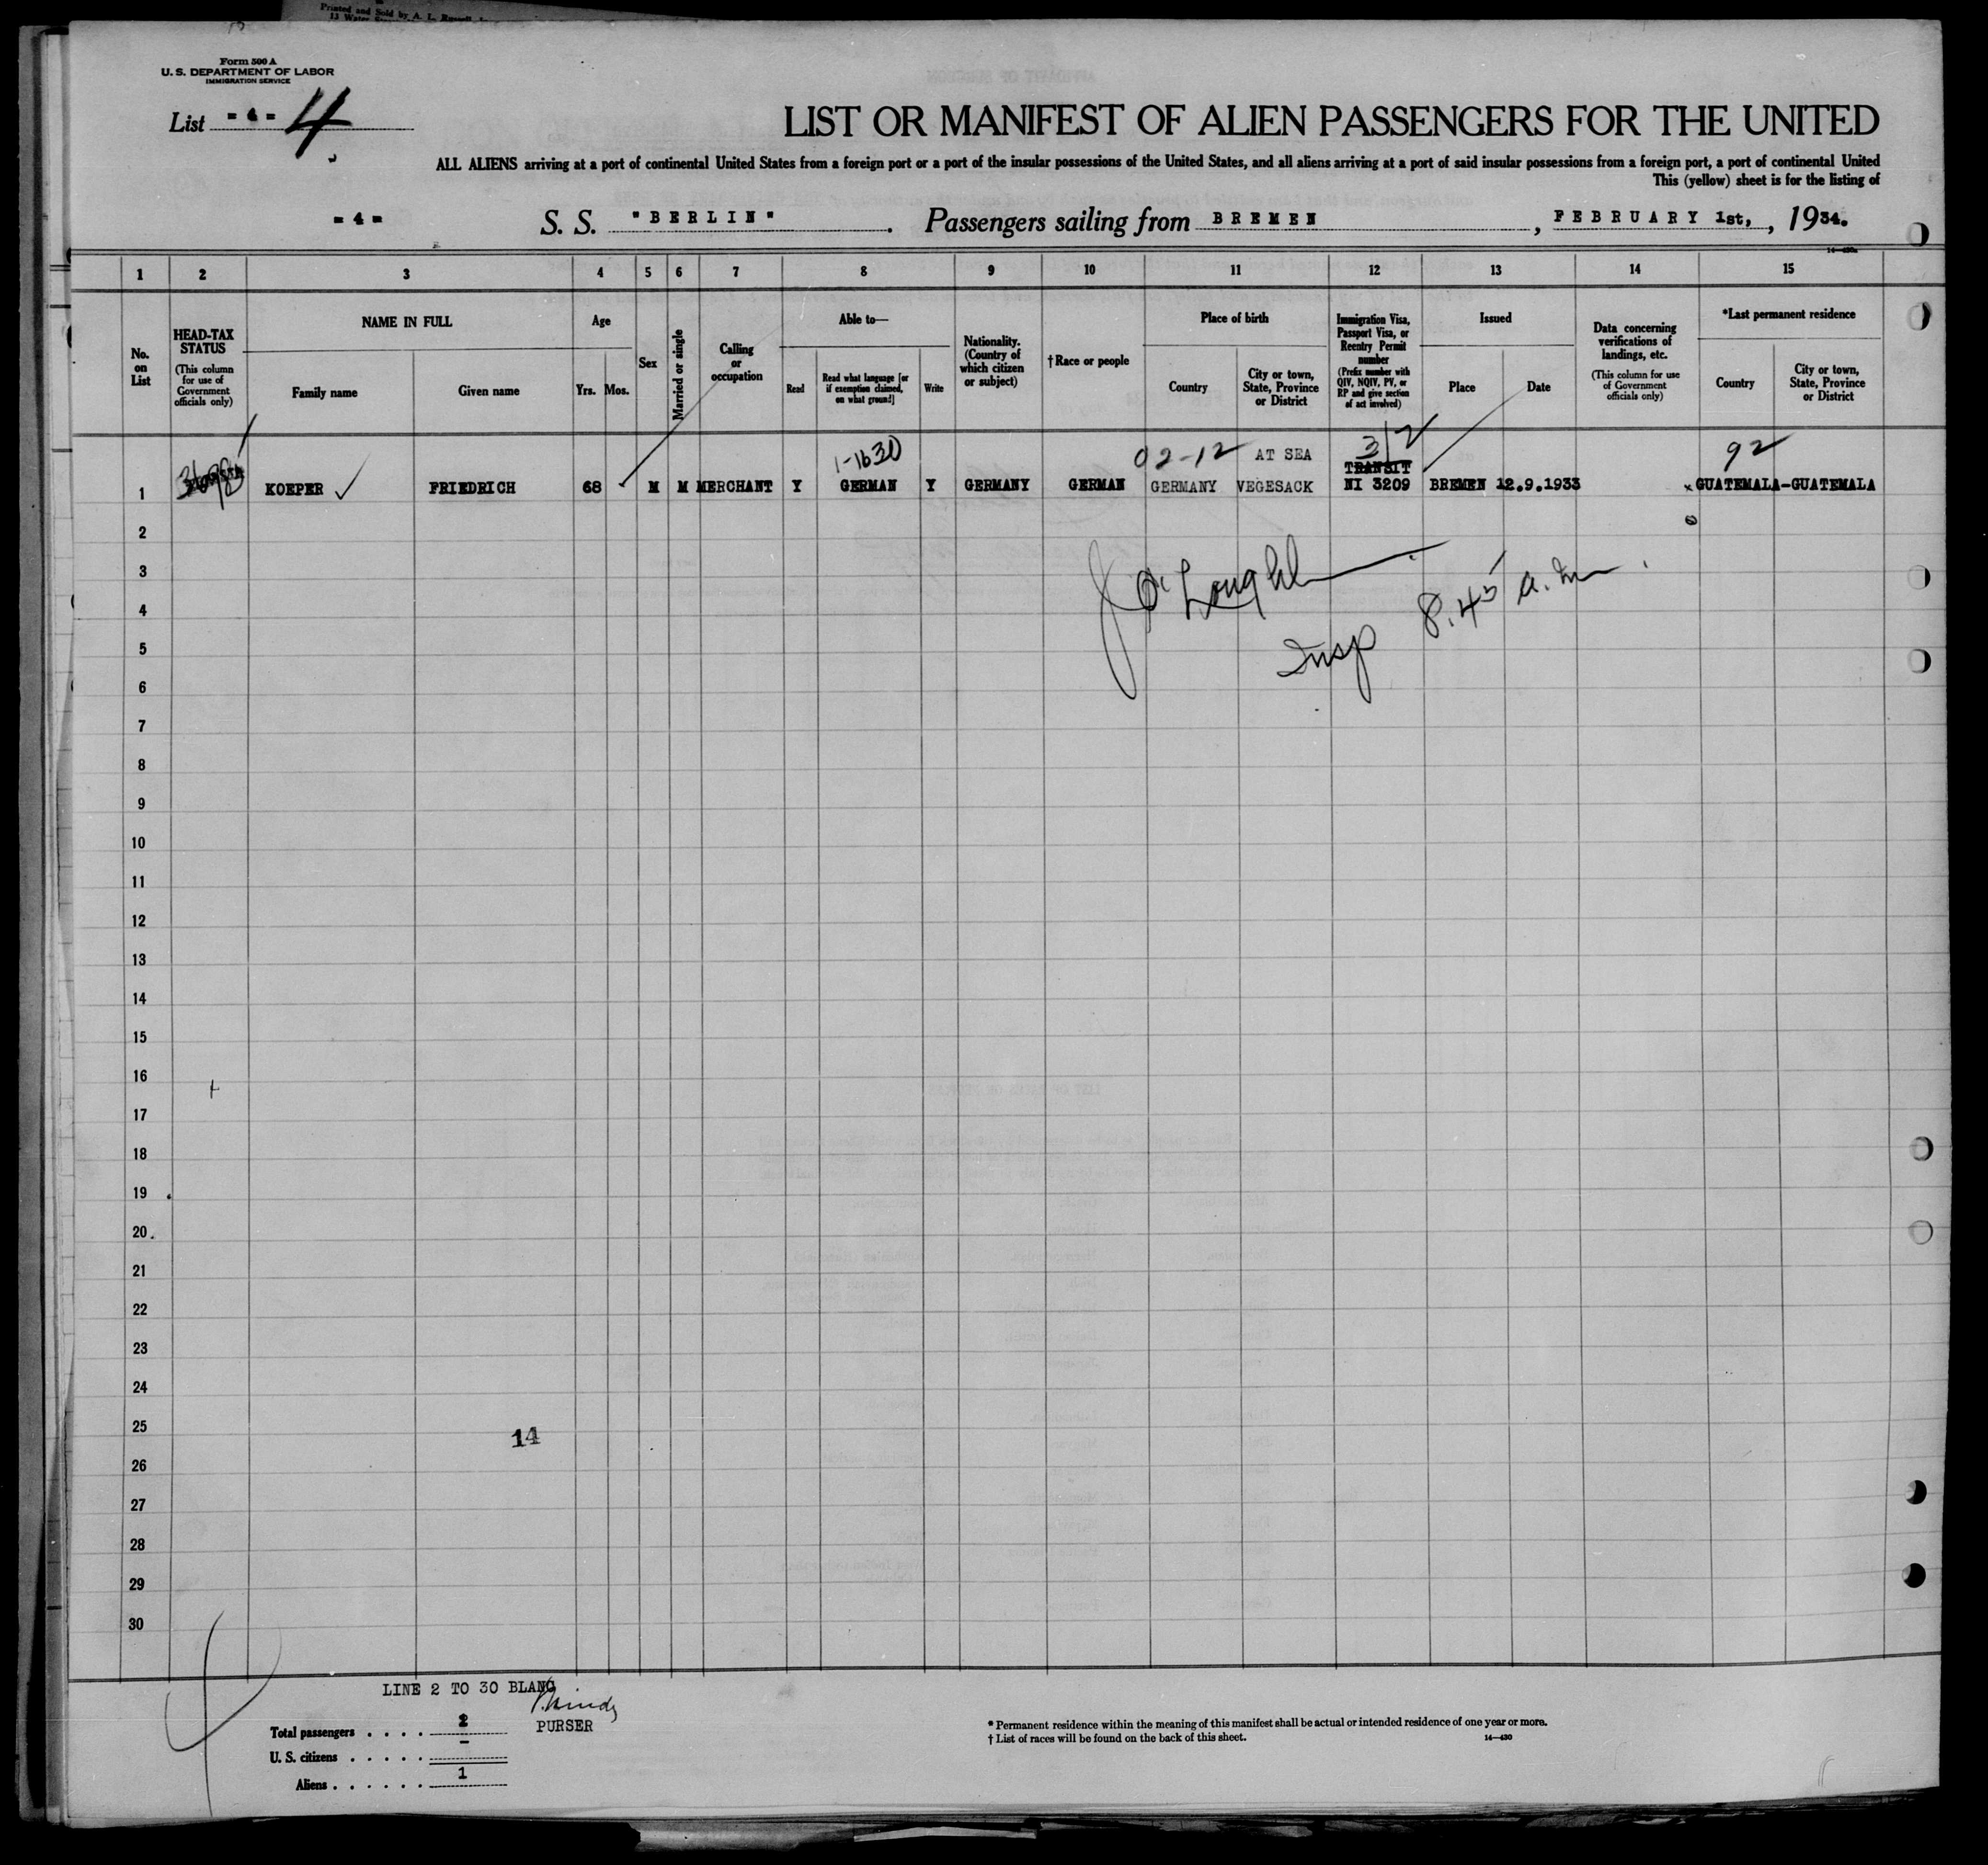 Printed and Sold by A. L.
13 Water
Form 500 A
U. S. DEPARTMENT OF LABOR
IMMIGRATION SERVICE
List = 4 = 4
LIST OR MANIFEST OF ALIEN PASSENGERS FOR THE UNITED
ALL ALIENS arriving at a port of continental United States from a foreign port or a port of the insular possessions of the United States, and all aliens arriving at a port of said insular possessions from a foreign port, a port of continental United
This (yellow) sheet is for the listing of
= 4 = S. S. "BERLIN". Passengers sailing from BREMEN, FEBRUARY 1st, , 1934.
1 2 3 4 5 6 7 8 9 10 11 12 13 14 15
No. on List
HEAD-TAX STATUS
(This column for use of Government officials only)
NAME IN FULL
Family name
Given name
Age
Yrs.
Mos.
Sex
Married or single
Calling or occupation
Able to—
Read
Read what language [or if exemption claimed, on what ground]
Write
Nationality. (Country of which citizen or subject)
†Race or people
Place of birth
Country
City or town, State, Province or District
Immigration Visa, Passport Visa, or Reentry Permit number
(Prefix number with QIV, NQIV, PV, or RP and give section of act involved)
Issued
Place
Date
Data concerning verifications of landings, etc.
(This column for use of Government officials only)
*Last permanent residence
Country
City or town, State, Province or District
1-1630 02-12 AT SEA 3/2 TRANSIT 92
1 KOEPER FRIEDRICH 68 M M MERCHANT Y GERMAN Y GERMANY GERMAN GERMANY VEGESACK NI 3209 BREMEN 12.9.1933 GUATEMALA-GUATEMALA
2
3
4
5
6
7
8
9
10
11
12
13
14
15
16
17
18
19
20
21
22
23
24
25
26
27
28
29
30
J O'Loughl
Insp 8.45 a.m.
14
LINE 2 TO 30 BLANC
PURSER
Total passengers . . . .
U. S. citizens . . . . . –
Aliens . . . . . . 1
* Permanent residence within the meaning of this manifest shall be actual or intended residence of one year or more.
† List of races will be found on the back of this sheet.
14—430